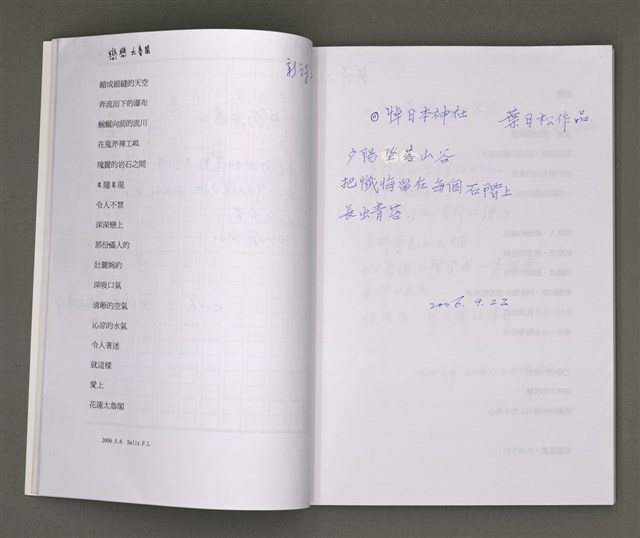 戀戀太魯閣
縮成細縫的天空
奔流而下的瀑布
蜿蜒向前的流川
在鬼斧神工崆
瑰麗的岩石之間
隱現
令人不禁
深深戀上
那份懾人的
壯麗婉約
深吸口氣
清晰的空氣
沁涼的水氣
令人著迷
就這樣
愛上
花蓮太魯閣
2006.5.6 Sally.F.L
新詩
⊙悼日本神社 葉日松作品
夕陽墜落山谷
把懺悔留在每個石階上
長出青苔
2006.9.23